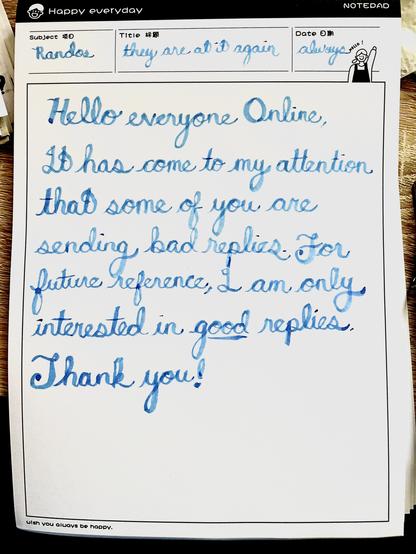 Happy everyday
NOTEPAD
Subject 项目
Randos
Title 标题
they are at it again
Date 日期
always
hello!
Hello everyone Online,
It has come to my attention
that some of you are
sending bad replies. For
future reference, I am only
interested in good replies.
Thank you!
wish you always be happy.